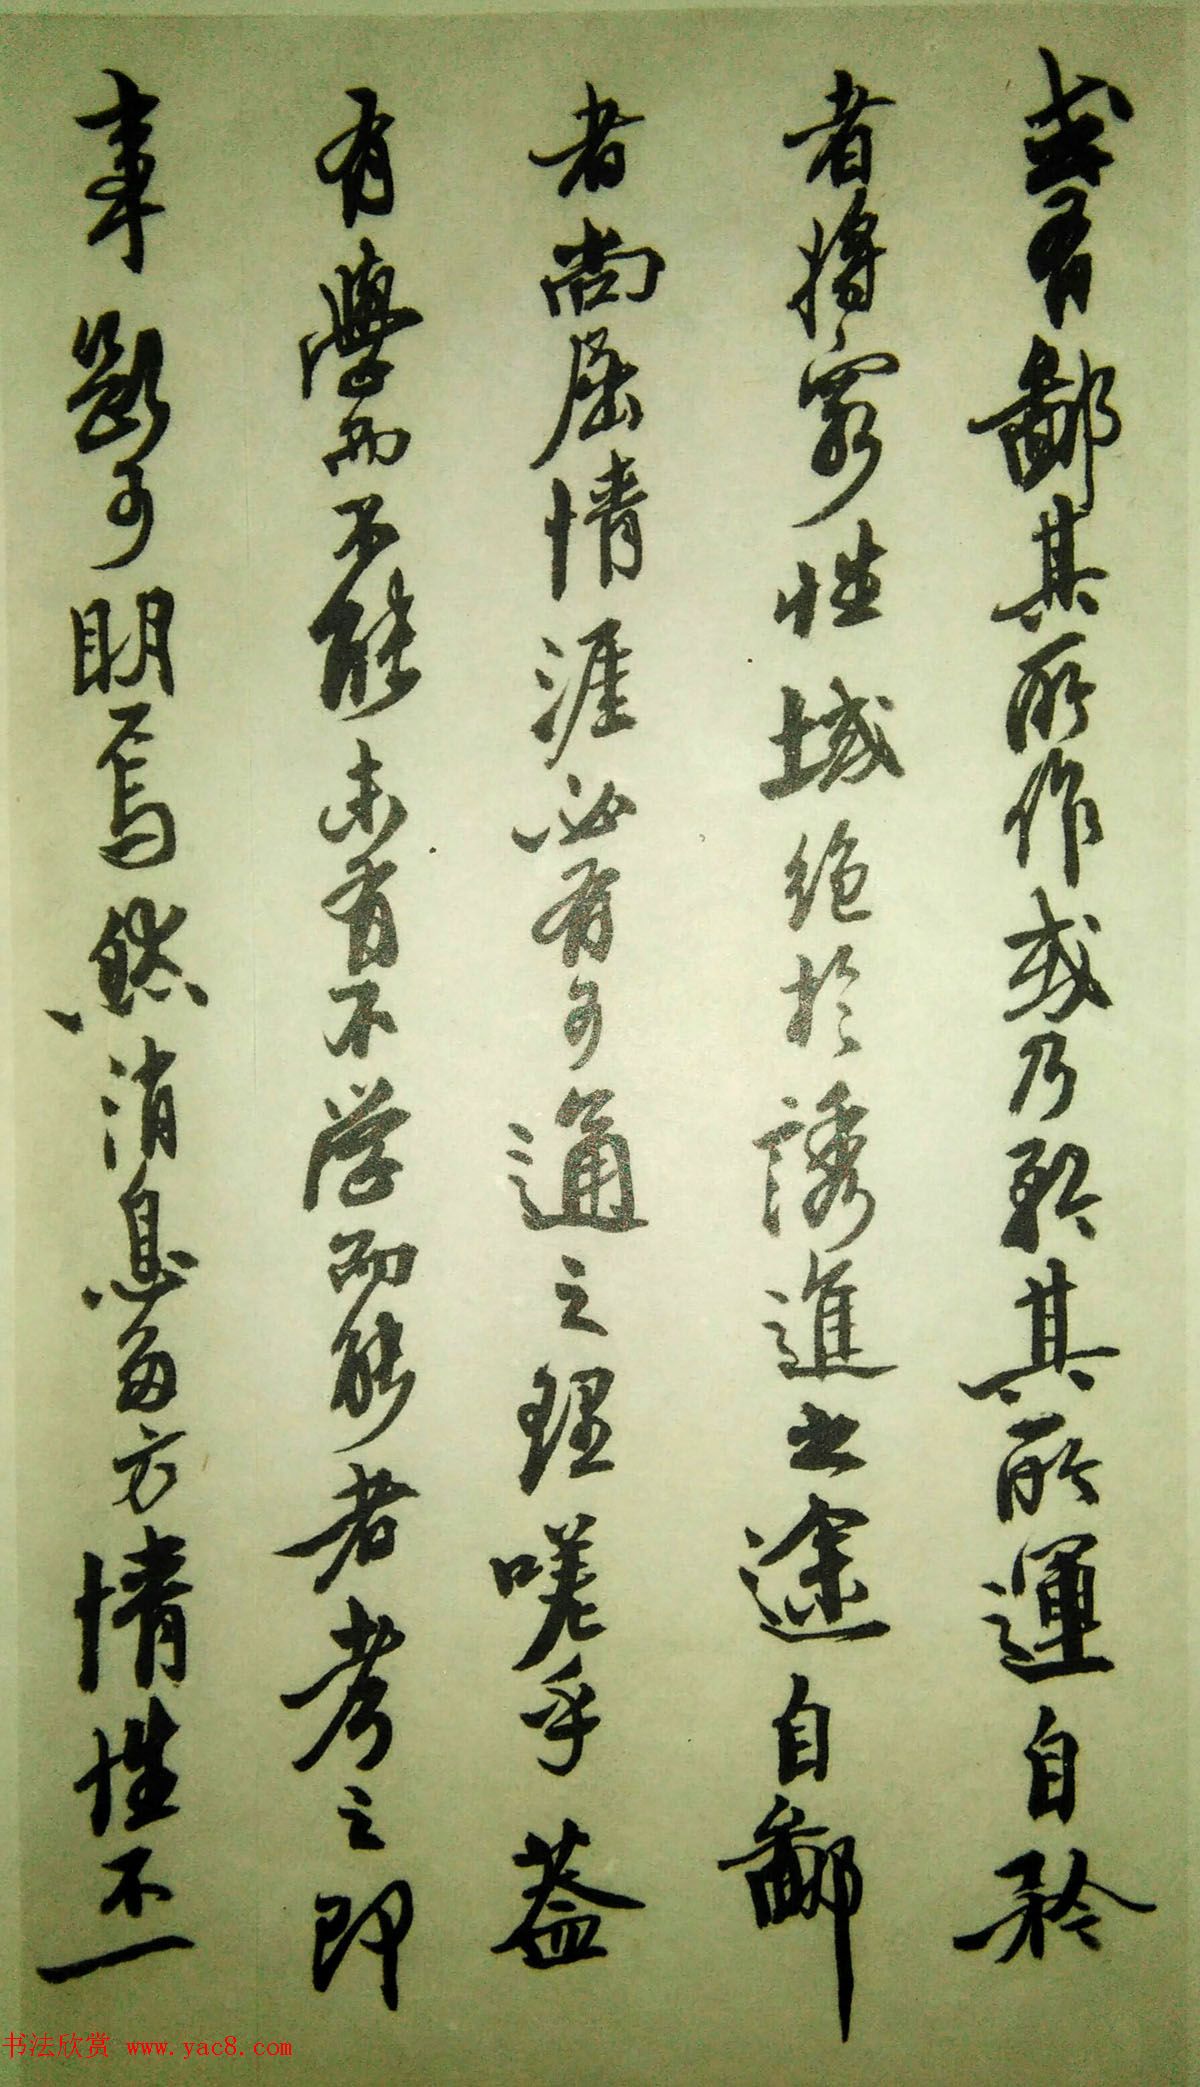 或有鄙其所作或乃矜其所運自矜
者將窮性域絕於誘進之途自鄙
者尚屈情涯必有可通之理嗟乎蓋
有學而不能未有不学而能者考之即
事斷可明焉然消息多方情性不一
书法欣赏 www.yac8.com